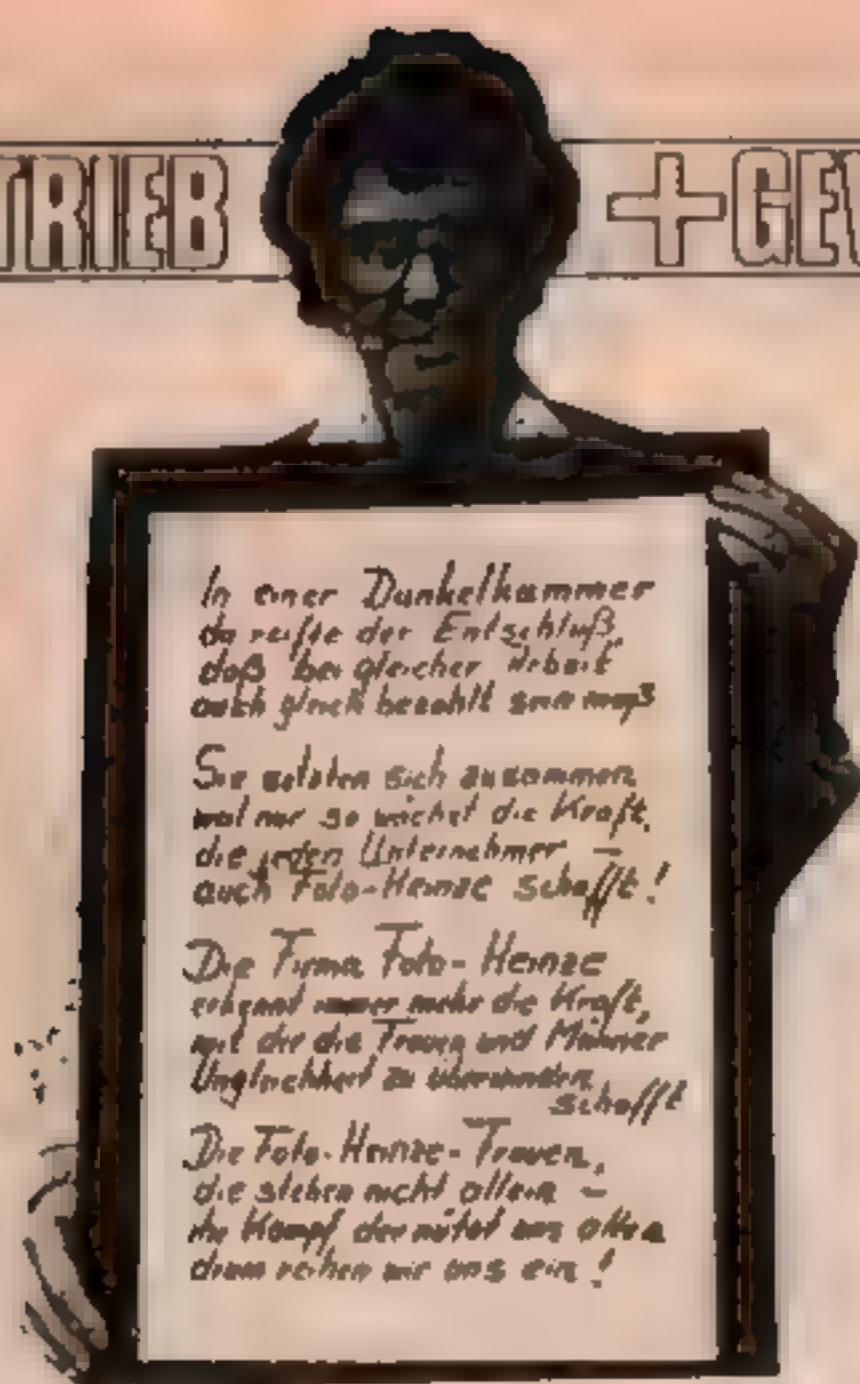 TRIEB + GEW
In einer Dunkelkammer
da reifte der Entschluß,
daß bei gleicher Arbeit
auch gleich bezahlt sein muß
Sie setzten sich zusammen
weil nur so wächst die Kraft,
die jeden Unternehmer –
auch Foto-Heinze schafft!
Die Firma Foto-Heinze
erkennt immer mehr die Kraft,
mit der die Frauen und Männer
Ungleichheit zu überwinden
schafft
Die Foto-Heinze-Frauen,
die stehen nicht allein –
ihr Kampf der nützt uns allen
drum reihen wir uns ein!